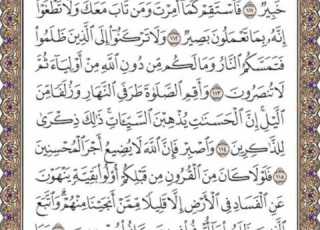 خَبِيرٌ ۝١١١ فَاسْتَقِمْ كَمَا أُمِرْتَ وَمَن تَابَ مَعَكَ وَلَا تَطْغَوْا
إِنَّهُ بِمَا تَعْمَلُونَ بَصِيرٌ ۝١١٢ وَلَا تَرْكَنُوا إِلَى الَّذِينَ ظَلَمُوا
فَتَمَسَّكُمُ النَّارُ وَمَا لَكُم مِّن دُونِ اللَّهِ مِنْ أَوْلِيَاءَ ثُمَّ
لَا تُنصَرُونَ ۝١١٣ وَأَقِمِ الصَّلَوٰةَ طَرَفَيِ النَّهَارِ وَزُلَفًا مِّنَ
الَّيْلِ إِنَّ الْحَسَنَٰتِ يُذْهِبْنَ السَّيِّـَٔاتِ ذَٰلِكَ ذِكْرَىٰ
لِلذَّٰكِرِينَ ۝١١٤ وَاصْبِرْ فَإِنَّ اللَّهَ لَا يُضِيعُ أَجْرَ الْمُحْسِنِينَ
۝١١٥ فَلَوْلَا كَانَ مِنَ الْقُرُونِ مِن قَبْلِكُمْ أُولُوا بَقِيَّةٍ يَنْهَوْنَ
عَنِ الْفَسَادِ فِي الْأَرْضِ إِلَّا قَلِيلًا مِّمَّنْ أَنجَيْنَا مِنْهُمْ وَاتَّبَعَ